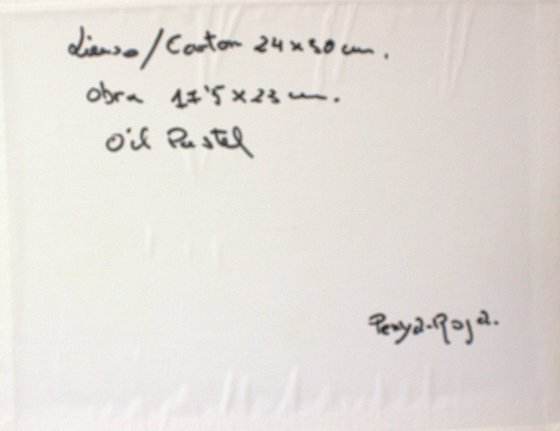 Lienzo/Carton 24x30 cm.
Obra 17'5 x 23 cm.
Oil Pastel
Penya-Roja.